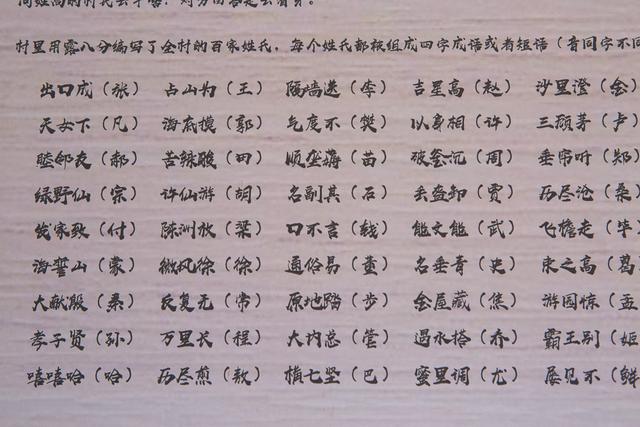 村里用露八分编写了全村的百家姓氏，每个姓氏都被组成四字成语或者短语（音同字不同
出口成（张） 占山为（王） 隔墙送（李） 吉星高（赵） 沙里澄（金）
天女下（凡） 海底摸（郭） 气度不（樊） 以身相（许） 三顾茅（卢）
睦邻友（郝） 苦辣酸（田） 顺垄薅（苗） 破釜沉（周） 垂帘听（郑）
绿野仙（宗） 许仙游（胡） 名副其（石） 丢盔卸（贾） 历尽沧（桑）
发家致（付） 陈州放（梁） 口不言（钱） 能文能（武） 飞檐走（毕）
海誓山（蒙） 微风徐（徐） 通俗易（董） 名垂青（史） 束之高（葛
大献殷（秦） 反复无（常） 原地踏（步） 金屋藏（焦） 游园惊（孟
孝子贤（孙） 万里长（程） 大内总（管） 遇水搭（乔） 霸王别（姬
嘻嘻哈（哈） 历尽煎（敖） 横七竖（巴） 蜜里调（尤） 屡见不（鲜